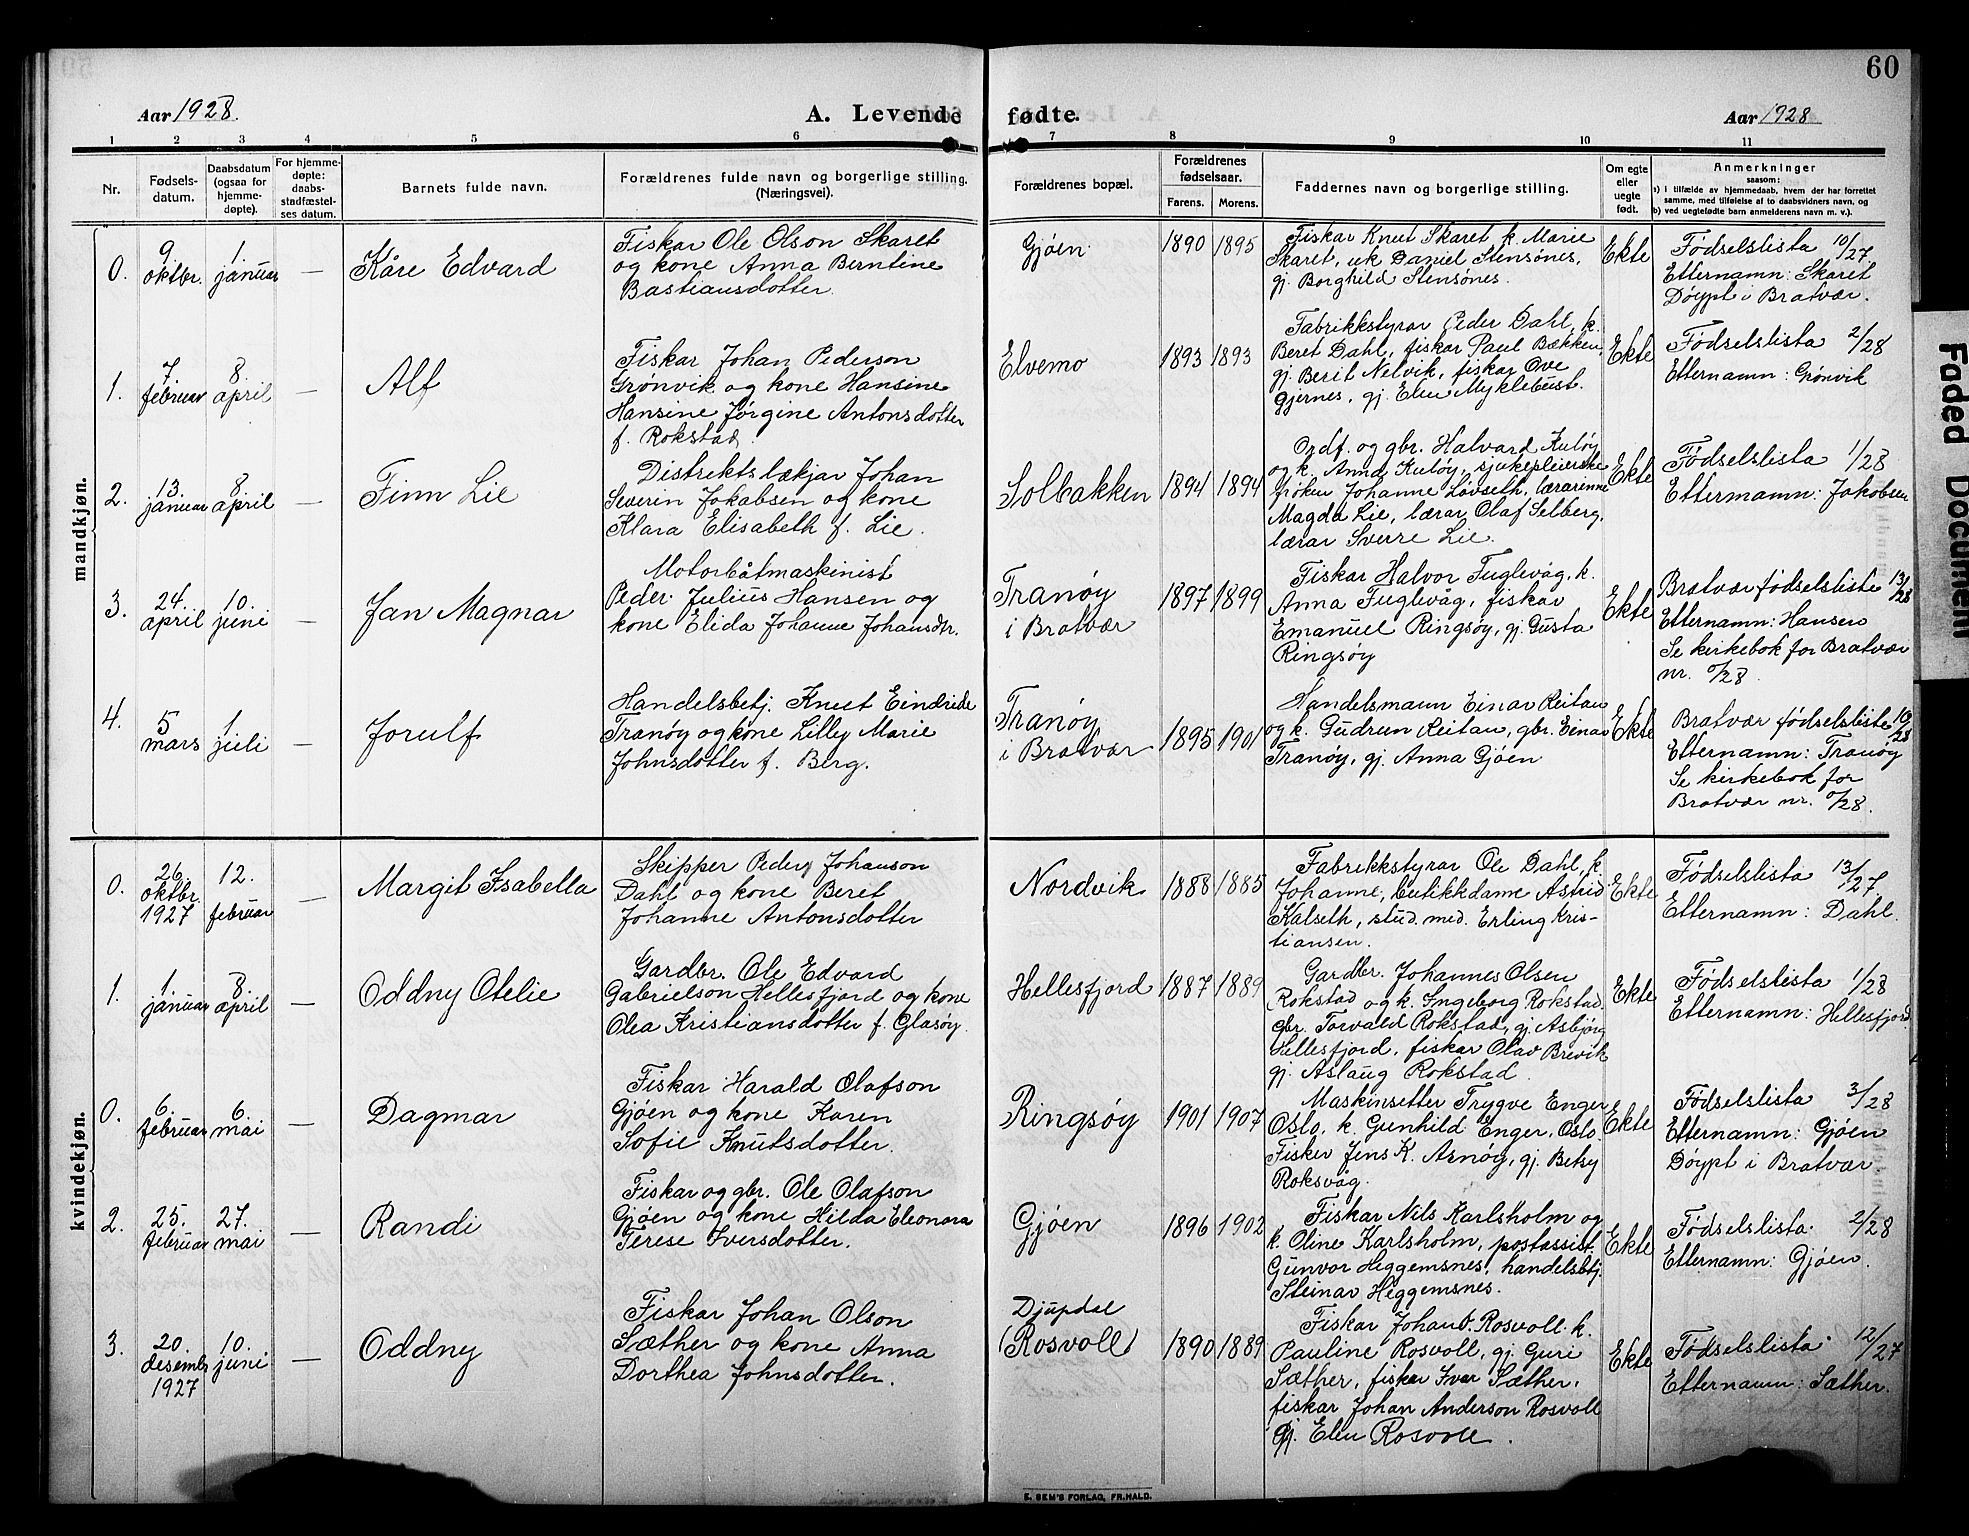 60
Aar 1928.
A. Levende fødte.
Aar 1928
1 2 3 4 5 6 7 8 9 10 11
Nr.
Fødsels-
datum.
Daabsdatum
(ogsaa for
hjemme-
døpte).
For hjemme-
døpte:
daabs-
stadfæstel-
ses datum.
Barnets fulde navn.
Forældrenes fulde navn og borgerlige stilling.
(Næringsvei).
Forældrenes bopæl.
Forældrenes
fødselsaar.
Farens. Morens.
Faddernes navn og borgerlige stilling.
Om egte
eller
uegte
født.
Anmerkninger
saasom:
a) i tilfælde av hjemmedaab, hvem der har forrettet
samme, med tilføielse af to daabsvidners navn, og
b) ved uegtefødte barn anmelderens navn m. v.).
mandkjøn.
0.
9
oktbr.
1
januar
—
Kåre Edvard
Fiskar Ole Olson Skaret
og kone Anna Berntine
Bastiansdotter.
Gjøen
1890 1895
Fiskar Knut Skaret k. Marie
Skaret, uk Daniel Stensønes,
gj. Borghild Stensønes.
Ekte
Fødselslista 10/27
Etternamn: Skaret
Døypt i Bratvær.
1.
7
februar
8
april
—
Alf
Fiskar Johan Pederson
Grønvik og kone Hansine
Hansine Jørgine Antonsdotter
f. Rokstad.
Elvemo
1893 1893
Fabrikkstyrar Peder Dahl, k.
Beret Dahl, fiskar Paul Bækken,
gj. Berit Nelvik, fiskar Ove
Gjernes, gj. Elen Myklebust.
Ekte
Fødselslista 2/28
Etternamn: Grønvik
2.
13.
januar
8
april
—
Finn Lie
Distriktslækjar Johan
Severin Jakobsen og kone
Klara Elisabeth f. Lie.
Solbakken
1894 1894
Ordf. og gbr. Halvard Kuløy
og k. Anna Kuløy, sjukepleierske
frøken Johanne Løvseth, lærarinne
Magda Lie, lærar Olaf Selberg,
lærar Sverre Lie.
Ekte
Fødselslista 1/28
Etternamn: Jakobsen
3.
24.
april
10.
juni
—
Jan Magnar
Motorbåtmaskinist
Peder Julius Hansen og
kone Elida Johanne Johansdtr.
Tranøy
i Bratvær
1897 1899
Fiskar Halvor Fuglevåg, k.
Anna Fuglevåg, fiskar
Emanuel Ringsøy, gj. Gusta
Ringsøy
Ekte
Bratvær fødselsliste 13/28
Etternamn: Hansen
Se kirkebok for Bratvær
nr. 0/28.
4.
5
mars
1
juli
—
Jorulf
Handelsbetj. Knut Eindride
Tranøy og kone Lilly Marie
Johnsdotter f. Berg.
Tranøy
i Bratvær
1895 1901
Handelsmann Einar Reitan
og k. Gudrun Reitan, gbr. Einar
Tranøy, gj. Anna Gjøen
Ekte
Bratvær fødselsliste 10/28
Etternamn: Tranøy
Se kirkebok for
Bratvær nr. 0/28.
kvindekjøn.
0.
26.
oktbr.
1927
12.
februar
—
Margit Isabella
Skipper Peder Johanson
Dahl og kone Beret
Johanne Antonsdotter
Nordvik
1888 1885
Fabrikkstyrar Ole Dahl, k.
Johanne, butikkdame Astrid
Kalseth, stud. med. Erling Kris-
tiansen.
Ekte
Fødselslista 13/27.
Etternamn: Dahl.
1.
1
januar
8.
april
—
Oddny Otelie
Gardbr. Ole Edvard
Gabrielson Hellesfjord og kone
Olea Kristiansdotter f. Glasøy.
Hellesfjord
1887 1889
Gardbr. Johannes Olsen
Rokstad og k. Ingeborg Rokstad.
gbr. Torvald Rokstad, gj. Asbjørg
Hellesfjord, fiskar Olav Brevik
gj. Aslaug Rokstad.
Ekte
Fødselslista 1/28
Etternamn: Hellesfjord
0.
6.
februar
6.
mai
—
Dagmar
Fiskar Harald Olafson
Gjøen og kone Karen
Sofie Knutsdotter.
Ringsøy
1901 1907
Maskinsetter Trygve Enger
Oslo, k. Gunhild Enger, Oslo.
Fisker Jens K. Asnøy, gj. Betsy
Roksvåg.
Ekte
Fødselslista 3/28
Etternamn: Gjøen
Døypt i Bratvær.
2.
25.
februar
27.
mai
—
Randi
Fiskar og gbr. Ole Olafson
Gjøen og kone Hilda Eleonora
Terese Iversdotter.
Gjøen
1896 1902
Fiskar Nils Karlsholm og
k. Oline Karlsholm, postassist.
Gunvor Heggemsnes, handelsbtj.
Steinar Heggemsnes.
Ekte
Fødselslista. 2/28
Etternamn: Gjøen.
3.
20.
desembr
1927
10.
juni
—
Oddny
Fiskar Johan Olson
Sæther og kone Anna
Dorthea Johnsdotter.
Djupdal
(Rosvoll)
1890 1889
Fiskar Johan O. Rosvoll k.
Pauline Rosvoll, gj. Guri
Sæther, fiskar Ivar Sæther,
fiskar Johan Anderson Rosvoll
gj. Elen Rosvoll.
Ekte
Fødselslista 12/27
Etternamn: Sæther.
E. SEM'S FORLAG, FR.HALD.
Faded Document